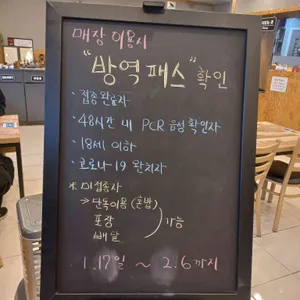 매장 이용시
"방역패스" 확인
· 접종완료자
· 48시간 내 PCR 음성 확인자
· 18세 이하
· 코로나-19 완치자
※ 미접종자
→ 단독이용 (혼밥)
포장
배달
가능
1.17일 ~ 2.6까지